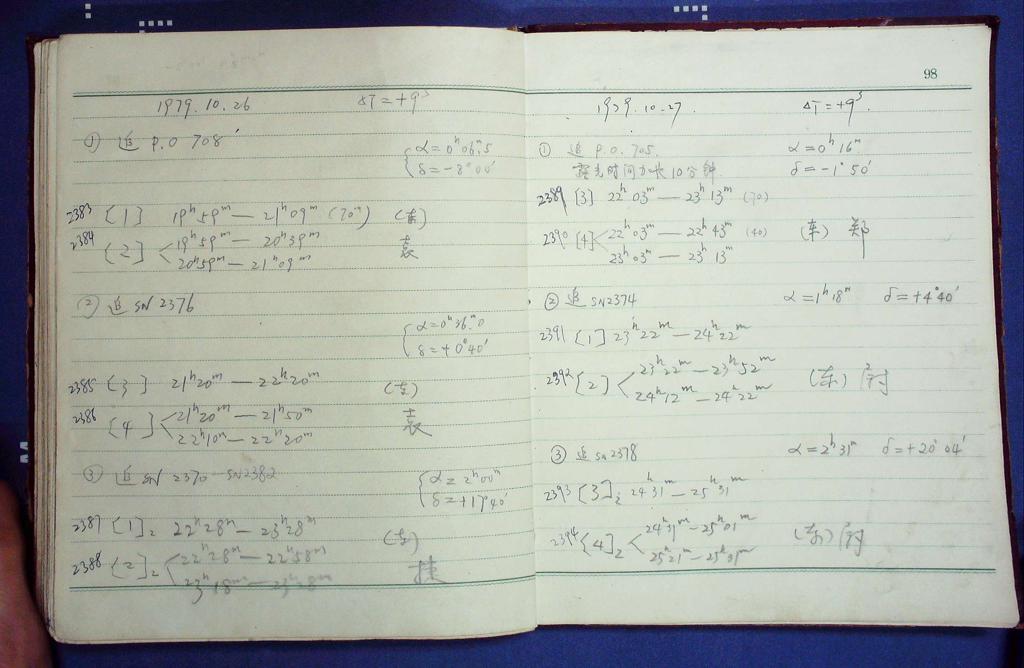 1979.10.26 ΔT=+9ˢ
① 追 P.O 708'
α=0ʰ06ᵐ.5
δ=-8°00'
2383 [1] 19ʰ59ᵐ — 21ʰ09ᵐ (70ᵐ) (东)
2384 [2] 19ʰ59ᵐ — 20ʰ39ᵐ 袁
20ʰ59ᵐ — 21ʰ09ᵐ
② 追 SN 2376
α=0ʰ36ᵐ.0
δ=+0°40'
2385 [3] 21ʰ20ᵐ — 22ʰ20ᵐ (东)
2386 [4] 21ʰ20ᵐ — 21ʰ50ᵐ 袁
22ʰ10ᵐ — 22ʰ20ᵐ
③ 追 SN 2370 SN2382
α=2ʰ00ᵐ
δ=+17°40'
2387 [1]₂ 22ʰ28ᵐ — 23ʰ28ᵐ (东)
2388 [2]₂ 22ʰ28ᵐ — 22ʰ58ᵐ
23ʰ18ᵐ — 23ʰ28ᵐ
98
1979.10.27. ΔT=+9ˢ.
① 追 P.O. 705. α=0ʰ16ᵐ
露光时间加长10分钟. δ=-1°50'
2389 [3] 22ʰ03ᵐ — 23ʰ13ᵐ (70)
2390 [4] 22ʰ03ᵐ — 22ʰ43ᵐ (40) (东) 郑
23ʰ03ᵐ — 23ʰ13ᵐ
② 追 SN2374 α=1ʰ18ᵐ δ=+4°40'
2391 [1] 23ʰ22ᵐ — 24ʰ22ᵐ
2392 [2] 23ʰ22ᵐ — 23ʰ52ᵐ (东)
24ʰ12ᵐ — 24ʰ22ᵐ
③ 追 SN2378 α=2ʰ31ᵐ δ=+20°04'
2393 [3]₂ 24ʰ31ᵐ — 25ʰ31ᵐ
2394 [4]₂ 24ʰ31ᵐ — 25ʰ01ᵐ (东)
25ʰ21ᵐ — 25ʰ31ᵐ